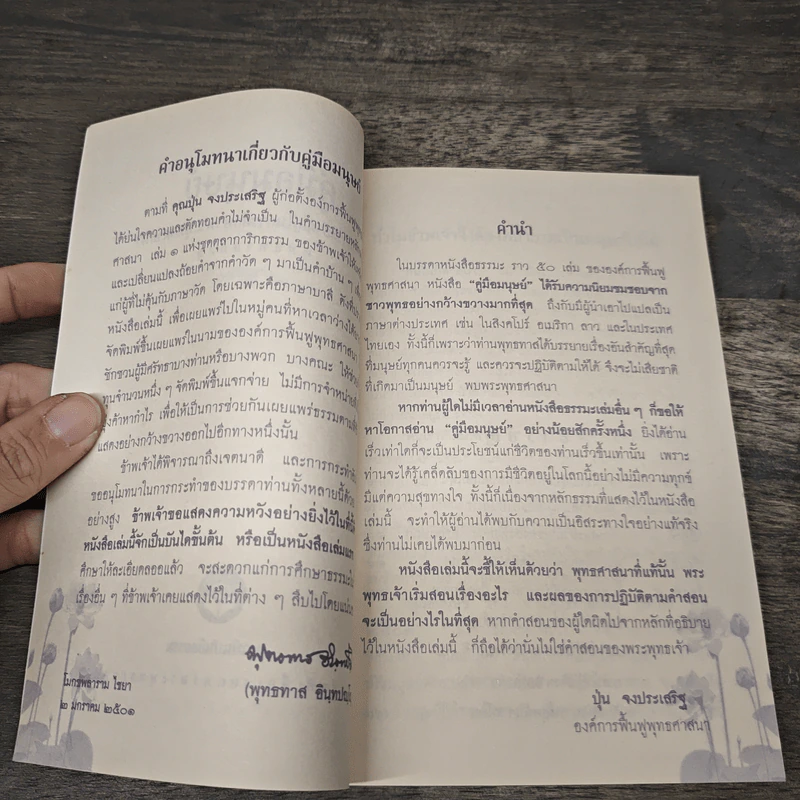 คำอนุโมทนาเกี่ยวกับคู่มือมนุษย์
ตามที่ คุณปุ่น จงประเสริฐ ผู้ก่อตั้งองค์การฟื้นฟู
ได้ย่นใจความและตัดทอนคำไม่จำเป็น ในคำบรรยาย
ศาสนา เล่ม ๑ แห่งชุดตุลาการิกธรรม ของข้าพเจ้า
และเปลี่ยนแปลงถ้อยคำจากคำวัด ๆ มาเป็นคำบ้าน ๆ
แก่ผู้ที่ไม่คุ้นกับภาษาวัด โดยเฉพาะคือภาษาบาลี
หนังสือเล่มนี้ เพื่อเผยแพร่ไปในหมู่คนที่หาเวลาว่าง
จัดพิมพ์ขึ้นเผยแพร่ในนามขององค์การฟื้นฟูพุทธศาสนา
ชักชวนผู้มีศรัทธาบางท่านหรือบางพวก บางคณะ
ทุนจำนวนหนึ่ง ๆ จัดพิมพ์ขึ้นแจกจ่าย ไม่มีการจำหน่าย
ค้าหากำไร เพื่อให้เป็นการช่วยกันเผยแพร่ธรรม
แสดงอย่างกว้างขวางออกไปอีกทางหนึ่งนั้น
ข้าพเจ้าได้พิจารณาถึงเจตนาดี และการกระทำ
ขออนุโมทนาในการกระทำของบรรดาท่านทั้งหลายนี้ด้วย
อย่างสูง ข้าพเจ้าขอแสดงความหวังอย่างยิ่งไว้ในที่นี้
หนังสือเล่มนี้จักเป็นบันไดขั้นต้น หรือเป็นหนังสือเล่มแรก
ศึกษาให้ละเอียดลออแล้ว จะสะดวกแก่การศึกษาธรรมะ
เรื่องอื่น ๆ ที่ข้าพเจ้าเคยแสดงไว้ในที่ต่าง ๆ สืบไปโดย
พุทธทาส อินฺทปญฺโญ
(พุทธทาส อินฺทปญฺ
โมกขพลาราม ไชยา
๒ มกราคม ๒๕๐๑
คำนำ
ในบรรดาหนังสือธรรมะ ราว ๕๐ เล่ม ขององค์การฟื้นฟู
พุทธศาสนา หนังสือ “คู่มือมนุษย์” ได้รับความนิยมชมชอบจาก
ชาวพุทธอย่างกว้างขวางมากที่สุด ถึงกับมีผู้นำเอาไปแปลเป็น
ภาษาต่างประเทศ เช่น ในสิงคโปร์ อเมริกา ลาว และในประเทศ
ไทยเอง ทั้งนี้ก็เพราะว่าท่านพุทธทาสได้บรรยายเรื่องอันสำคัญที่สุด
ที่มนุษย์ทุกคนควรจะรู้ และควรจะปฏิบัติตามให้ได้ จึงจะไม่เสียชาติ
ที่เกิดมาเป็นมนุษย์ พบพระพุทธศาสนา
หากท่านผู้ใดไม่มีเวลาอ่านหนังสือธรรมะเล่มอื่น ๆ ก็ขอให้
หาโอกาสอ่าน “คู่มือมนุษย์” อย่างน้อยสักครั้งหนึ่ง ยิ่งได้อ่าน
เร็วเท่าใดก็จะเป็นประโยชน์แก่ชีวิตของท่านเร็วขึ้นเท่านั้น เพราะ
ท่านจะได้รู้เคล็ดลับของการมีชีวิตอยู่ในโลกนี้อย่างไม่มีความทุกข์
มีแต่ความสุขทางใจ ทั้งนี้ก็เนื่องจากหลักธรรมที่แสดงไว้ในหนังสือ
เล่มนี้ จะทำให้ผู้อ่านได้พบกับความเป็นอิสระทางใจอย่างแท้จริง
ซึ่งท่านไม่เคยได้พบมาก่อน
หนังสือเล่มนี้จะชี้ให้เห็นด้วยว่า พุทธศาสนาที่แท้นั้น พระ
พุทธเจ้าเริ่มสอนเรื่องอะไร และผลของการปฏิบัติตามคำสอน
จะเป็นอย่างไรในที่สุด หากคำสอนของผู้ใดผิดไปจากหลักที่อธิบาย
ไว้ในหนังสือเล่มนี้ ก็ถือได้ว่านั่นไม่ใช่คำสอนของพระพุทธเจ้า
ปุ่น จงประเสริฐ
องค์การฟื้นฟูพุทธศาสนา